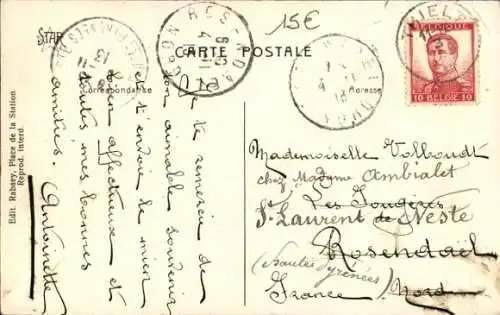 15€
STAR
CARTE POSTALE
Correspondance
Adresse
BELGIE
10 BELGIE 10
Je te remercie de
ton aimable souvenir
et t'envoie le mien
bien affectueux et
toutes mes bonnes
amitiés. Antoinette
Mademoiselle Vollboudt
chez Madame Ambialet
Les Fougères
St Laurent de Neste
Rosendaël
(Hautes Pyrénées)
France Nord
Edit. Rabaey, Place de la Station
Reprod. interd.